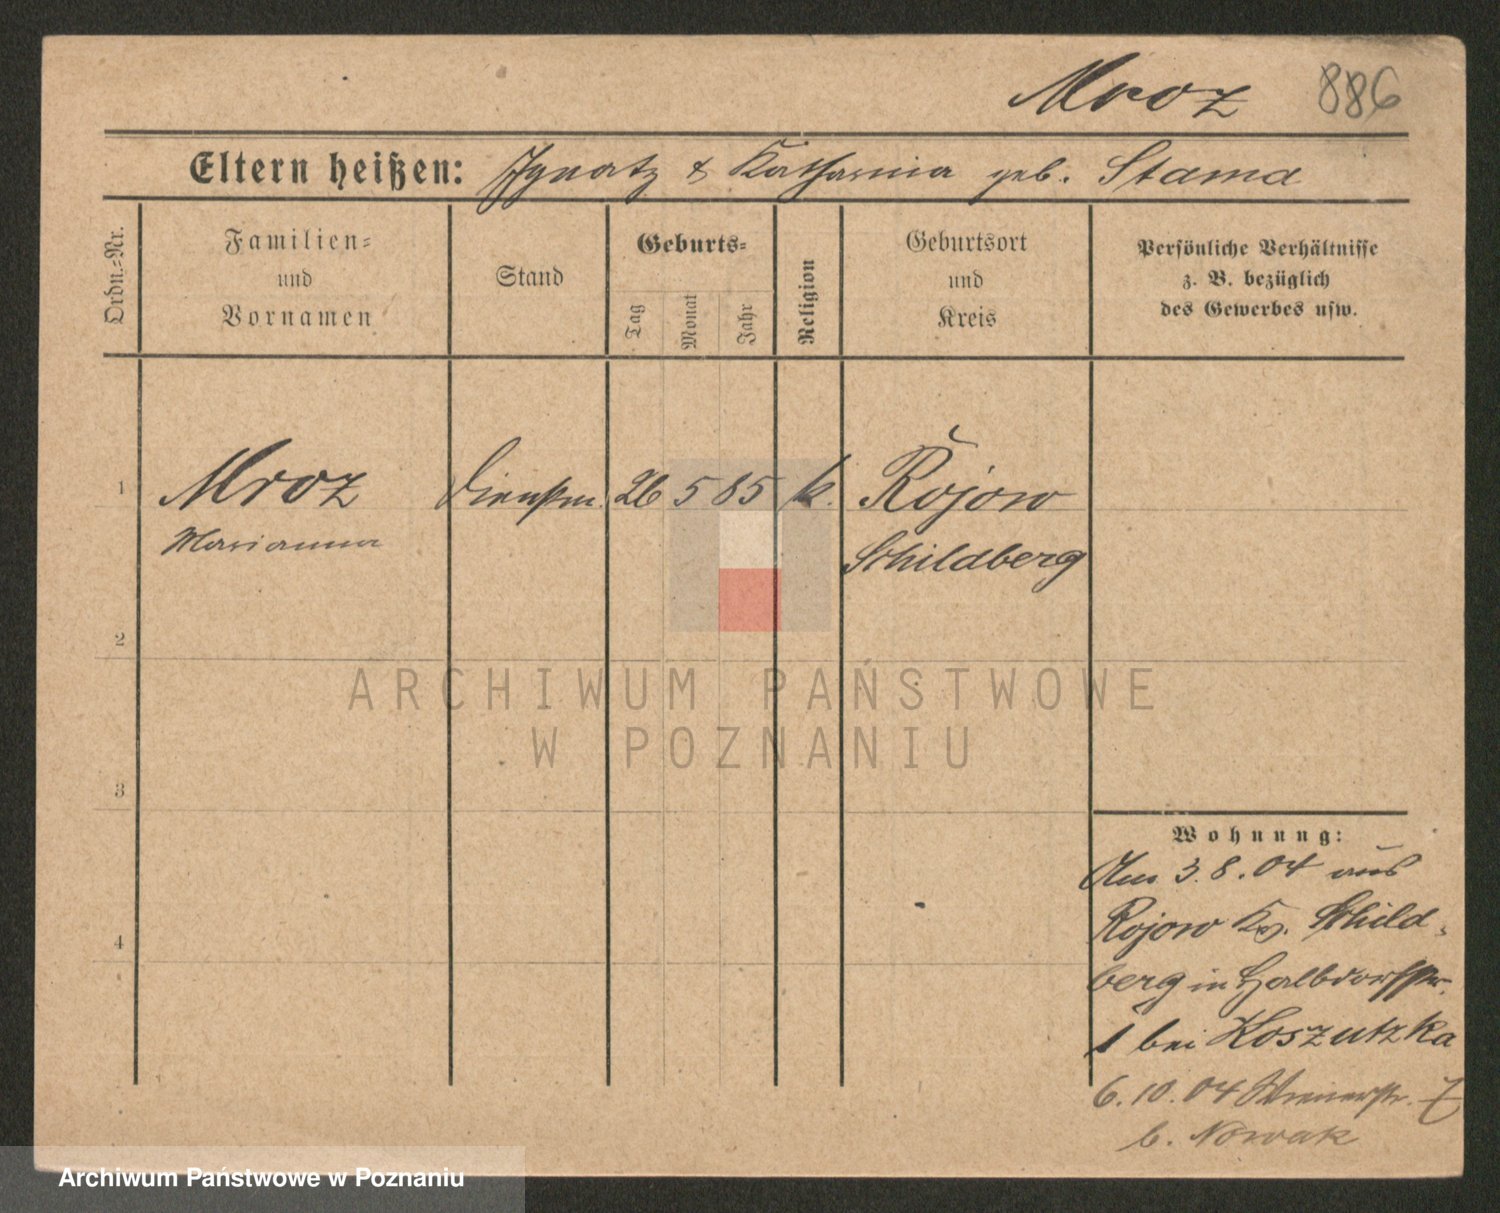 Mroz 886
Eltern heißen: Ignatz & Katharina geb. Stama
Ordn.-Nr.
Familien-
und
Vornamen
Stand
Geburts-
Tag
Monat
Jahr
Religion
Geburtsort
und
Kreis
Persönliche Verhältnisse
z. B. bezüglich
des Gewerbes usw.
1 Mroz Dienstm. 26 5 85 k. Rojow
Marianna Schildberg
2
3
4
Wohnung:
Am 3.8.04 aus
Rojow Kr. Schild-
berg in Halbdorfstr.
1 bei Koszutzka
6.10.04 7
b. Nowak
ARCHIWUM PAŃSTWOWE
W POZNANIU
Archiwum Państwowe w Poznaniu